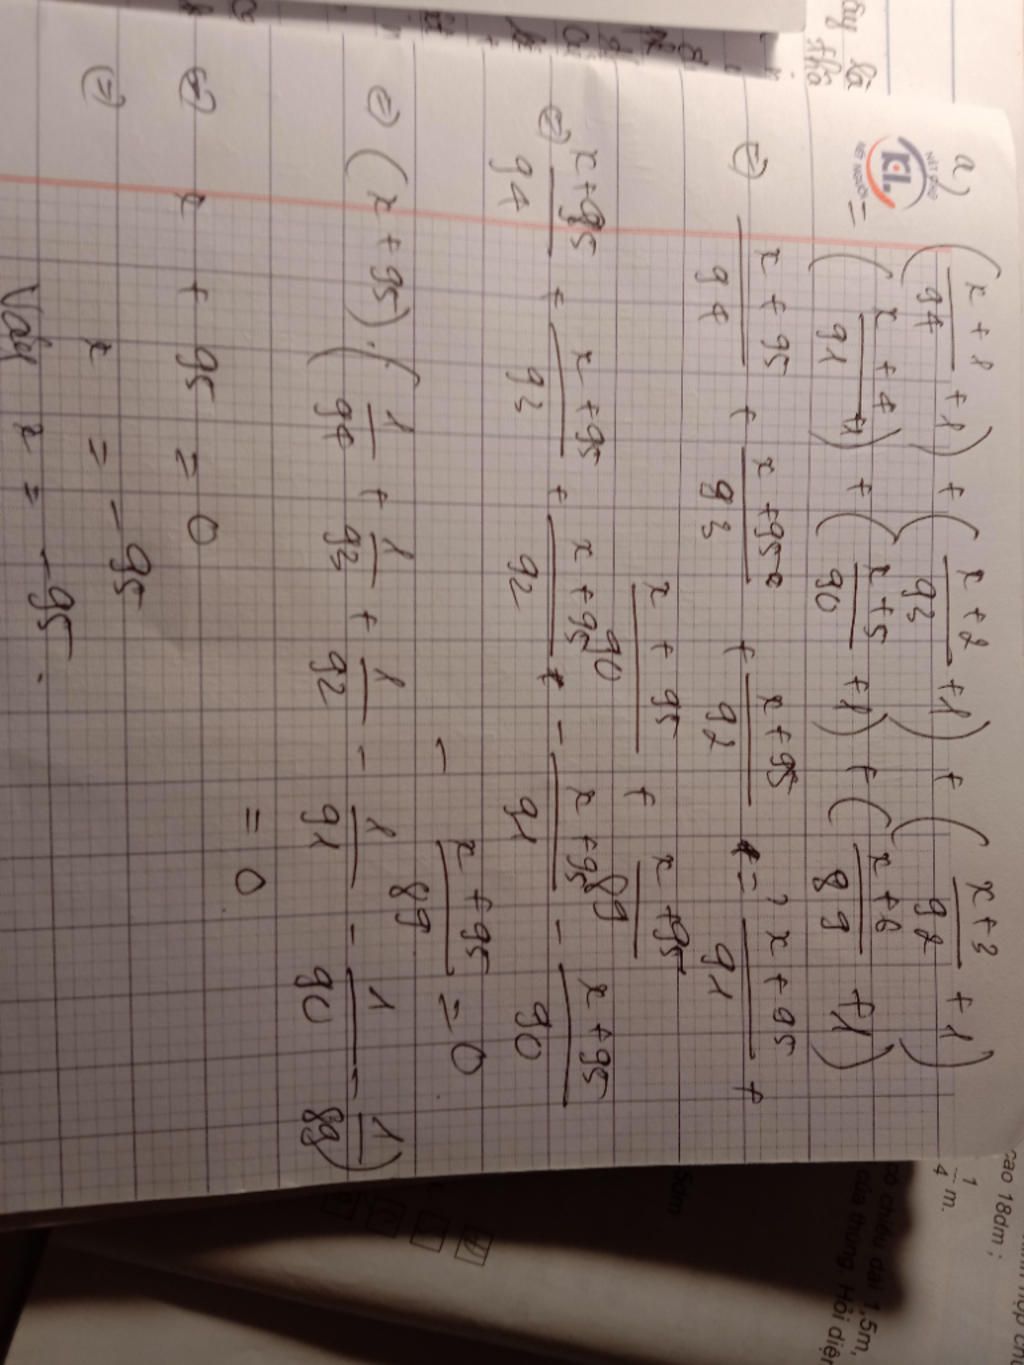 a) (x+1/94 + 1) + (x+2/93 + 1) + (x+3/92 + 1)
= (x+4/91 + 1) + (x+5/90 + 1) + (x+6/89 + 1)
⇔ x+95/94 + x+95/93 + x+95/92 = x+95/91 +
x+95/90 + x+95/89
⇔ x+95/94 + x+95/93 + x+95/92 - x+95/91 - x+95/90
- x+95/89 = 0
⇔ (x+95).(1/94 + 1/93 + 1/92 - 1/91 - 1/90 - 1/89)
= 0
⇔ x + 95 = 0
⇔ x = -95
Vậy x = -95.
KL
NÉT CHỮ
NẾT NGƯỜI
cao 18dm;
1/4 m.
có chiều dài 1,5m,
của thùng. Hỏi diện
5dm